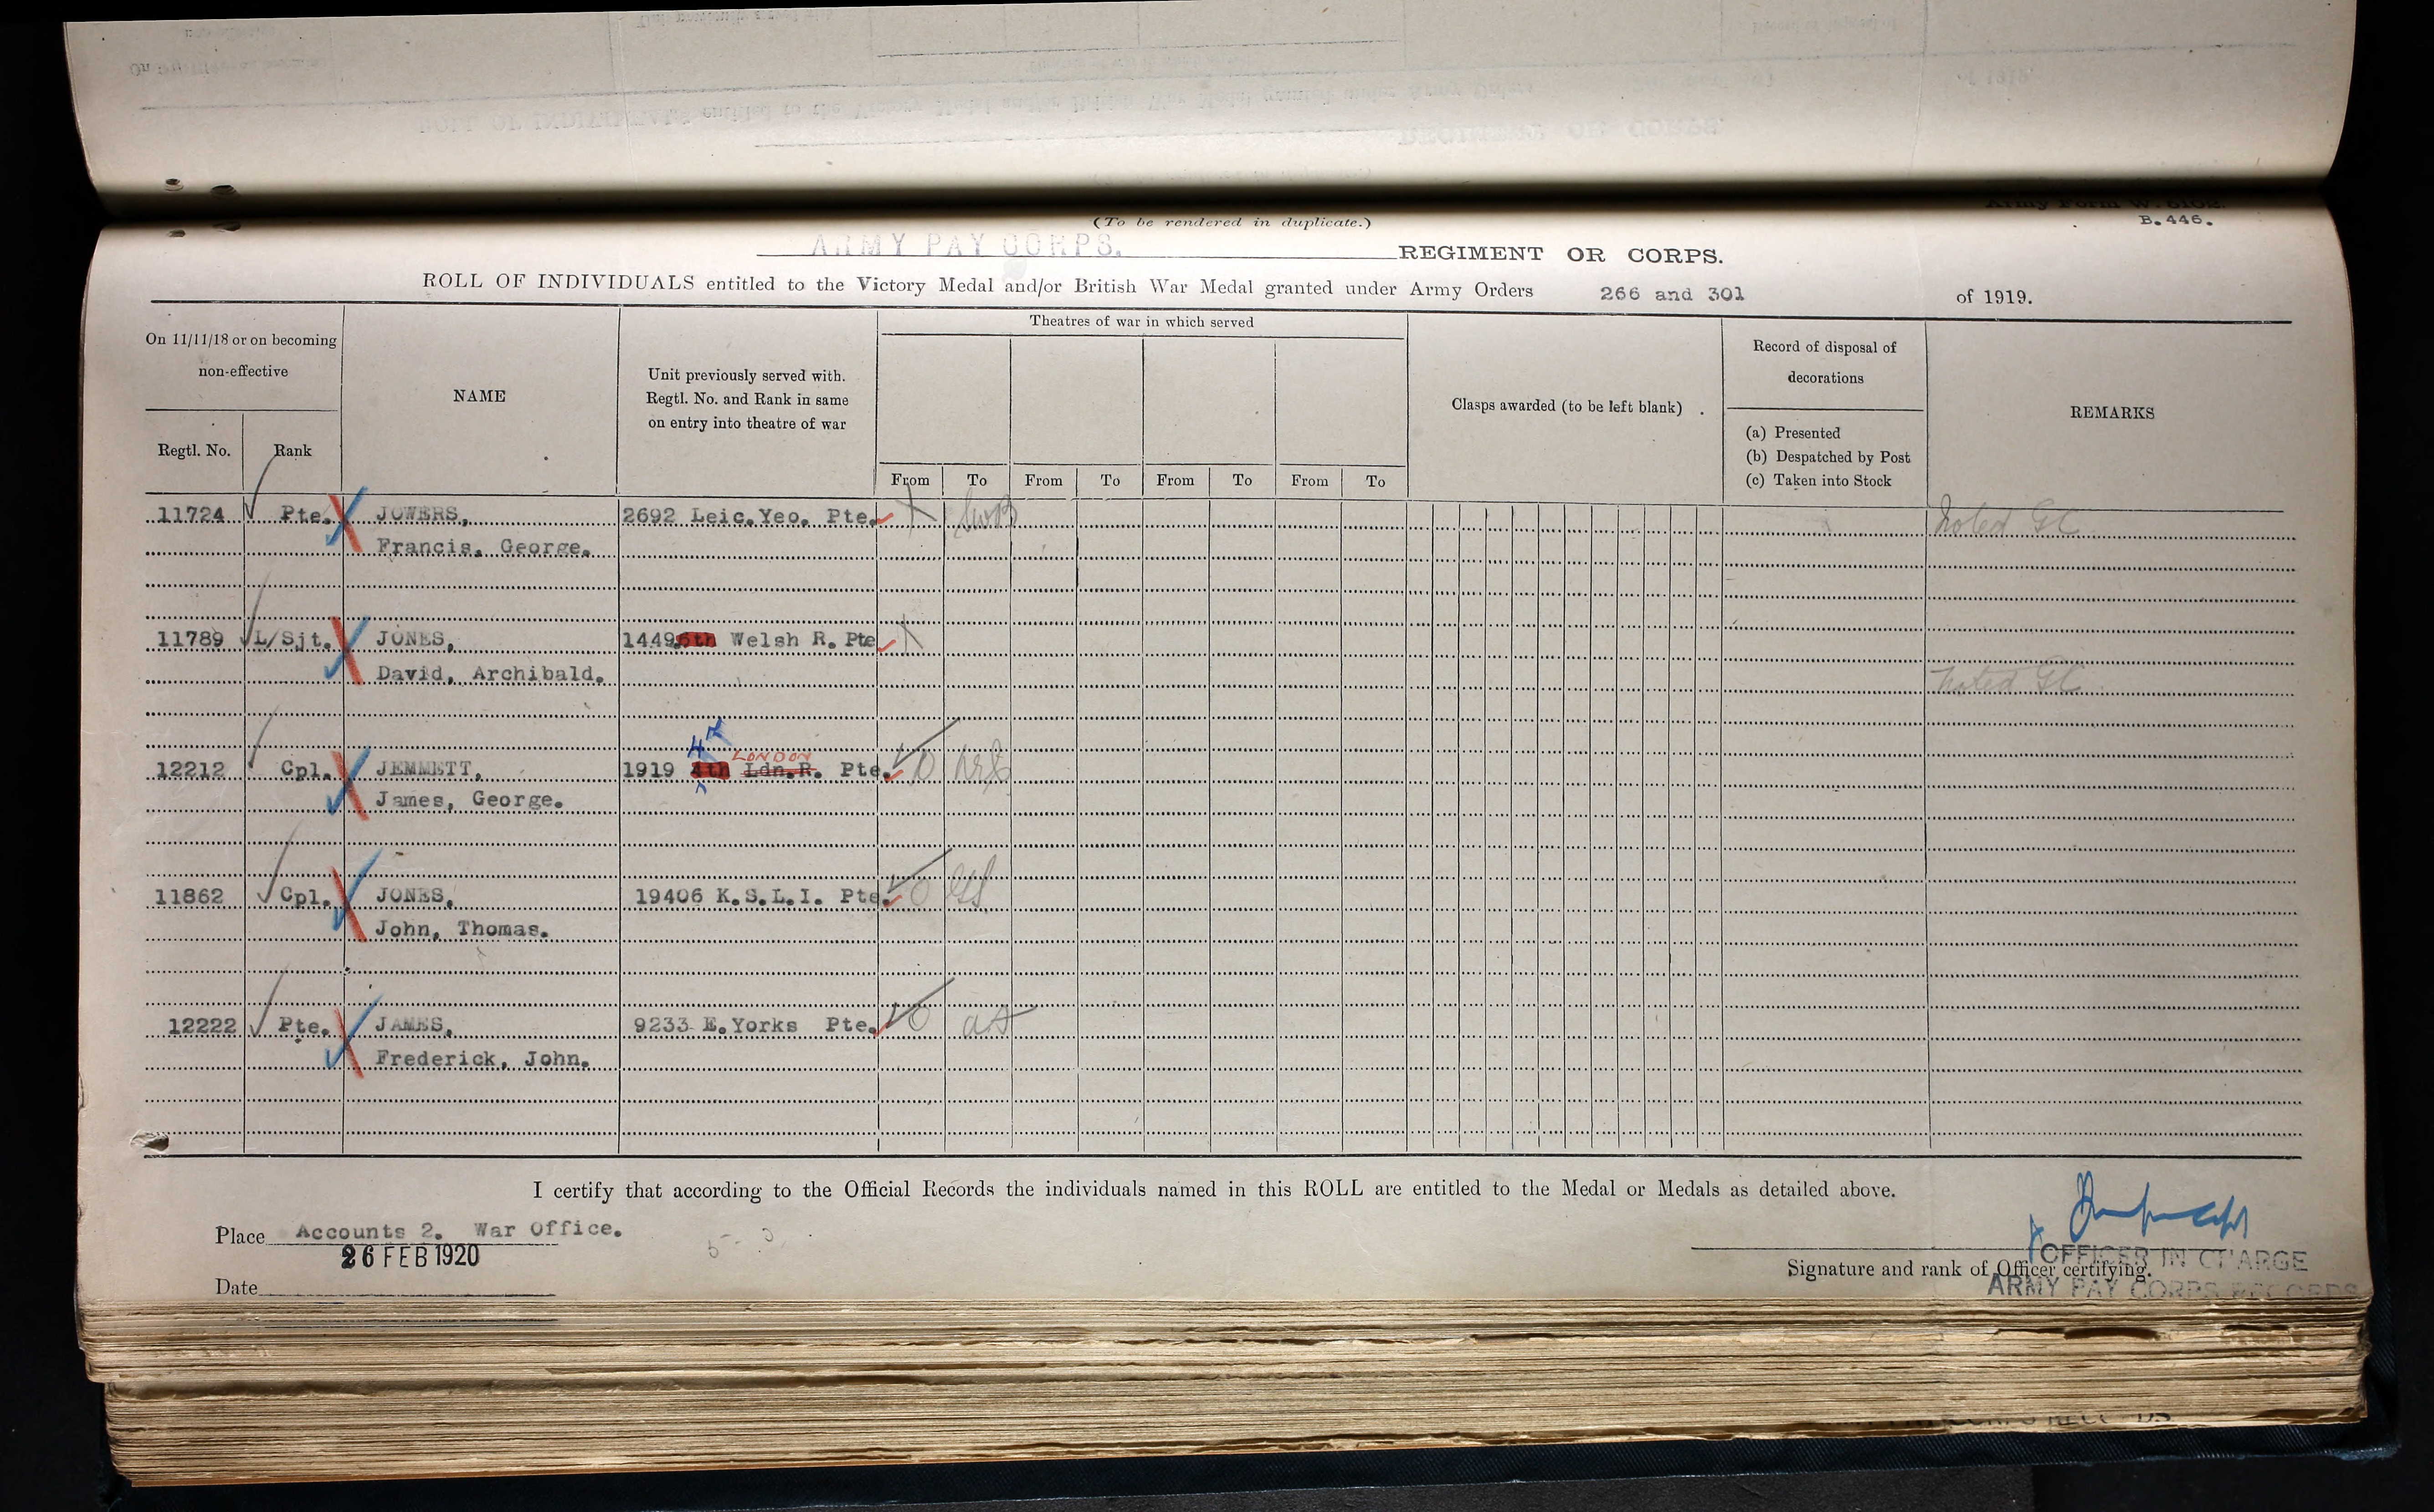 Army Form W. 5102.
B. 446.
(To be rendered in duplicate.)
ARMY PAY CORPS. REGIMENT OR CORPS.
ROLL OF INDIVIDUALS entitled to the Victory Medal and/or British War Medal granted under Army Orders 266 and 301 of 1919.
On 11/11/18 or on becoming
non-effective
Regtl. No. Rank
NAME
Unit previously served with.
Regtl. No. and Rank in same
on entry into theatre of war
Theatres of war in which served
From To From To From To From To
Clasps awarded (to be left blank)
Record of disposal of
decorations
(a) Presented
(b) Despatched by Post
(c) Taken into Stock
REMARKS
11724 Pte. JOWERS, 2692 Leic.Yeo. Pte. Noted GC
Francis, George.
11789 L/Sjt. JONES, 1449 6th Welsh R. Pte
David, Archibald. Noted GC
4th LONDON
12212 Cpl. JEMMETT, 1919 4th Ldn.R. Pte.
James, George.
11862 Cpl. JONES, 19406 K.S.L.I. Pte.
John, Thomas.
12222 Pte. JAMES, 9233 E.Yorks Pte.
Frederick, John.
I certify that according to the Official Records the individuals named in this ROLL are entitled to the Medal or Medals as detailed above.
Place Accounts 2. War Office.
26 FEB 1920
Date
Signature and rank of Officer certifying.
OFFICER IN CHARGE
ARMY PAY CORPS RECORDS